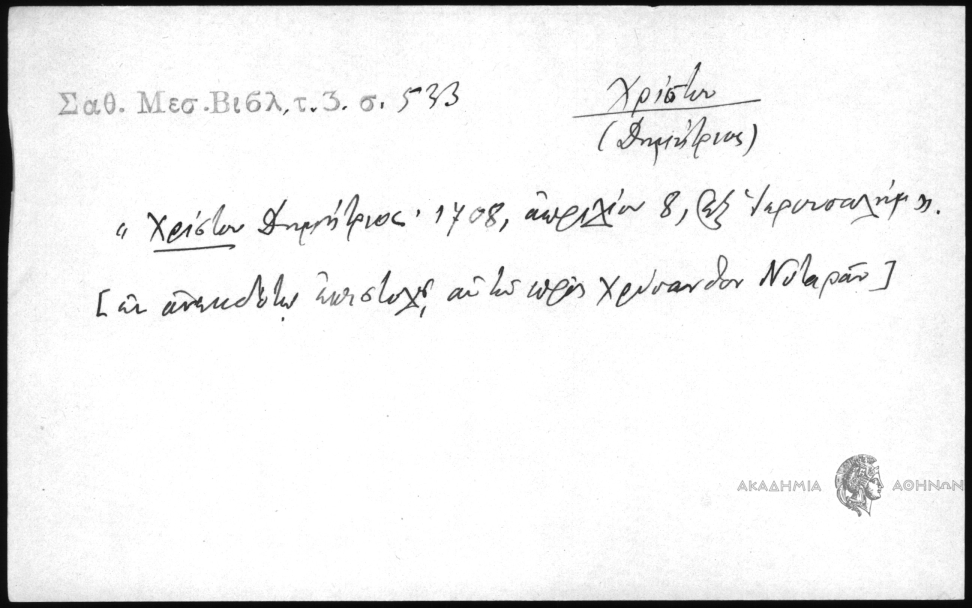 Σαθ. Μεσ. Βιβλ, τ. 3. σ. 533
Χρίστου
(Δημήτριος)
“ Χρίστου Δημήτριος· 1708, ἀπριλίου 8, ἐξ Ἱερουσαλήμ ”.
[ ἐν ἀνεκδότῳ ἐπιστολῇ αὐτοῦ πρὸς Χρύσανθον Νοταρᾶν ]
ΑΚΑΔΗΜΙΑ ΑΘΗΝΩΝ